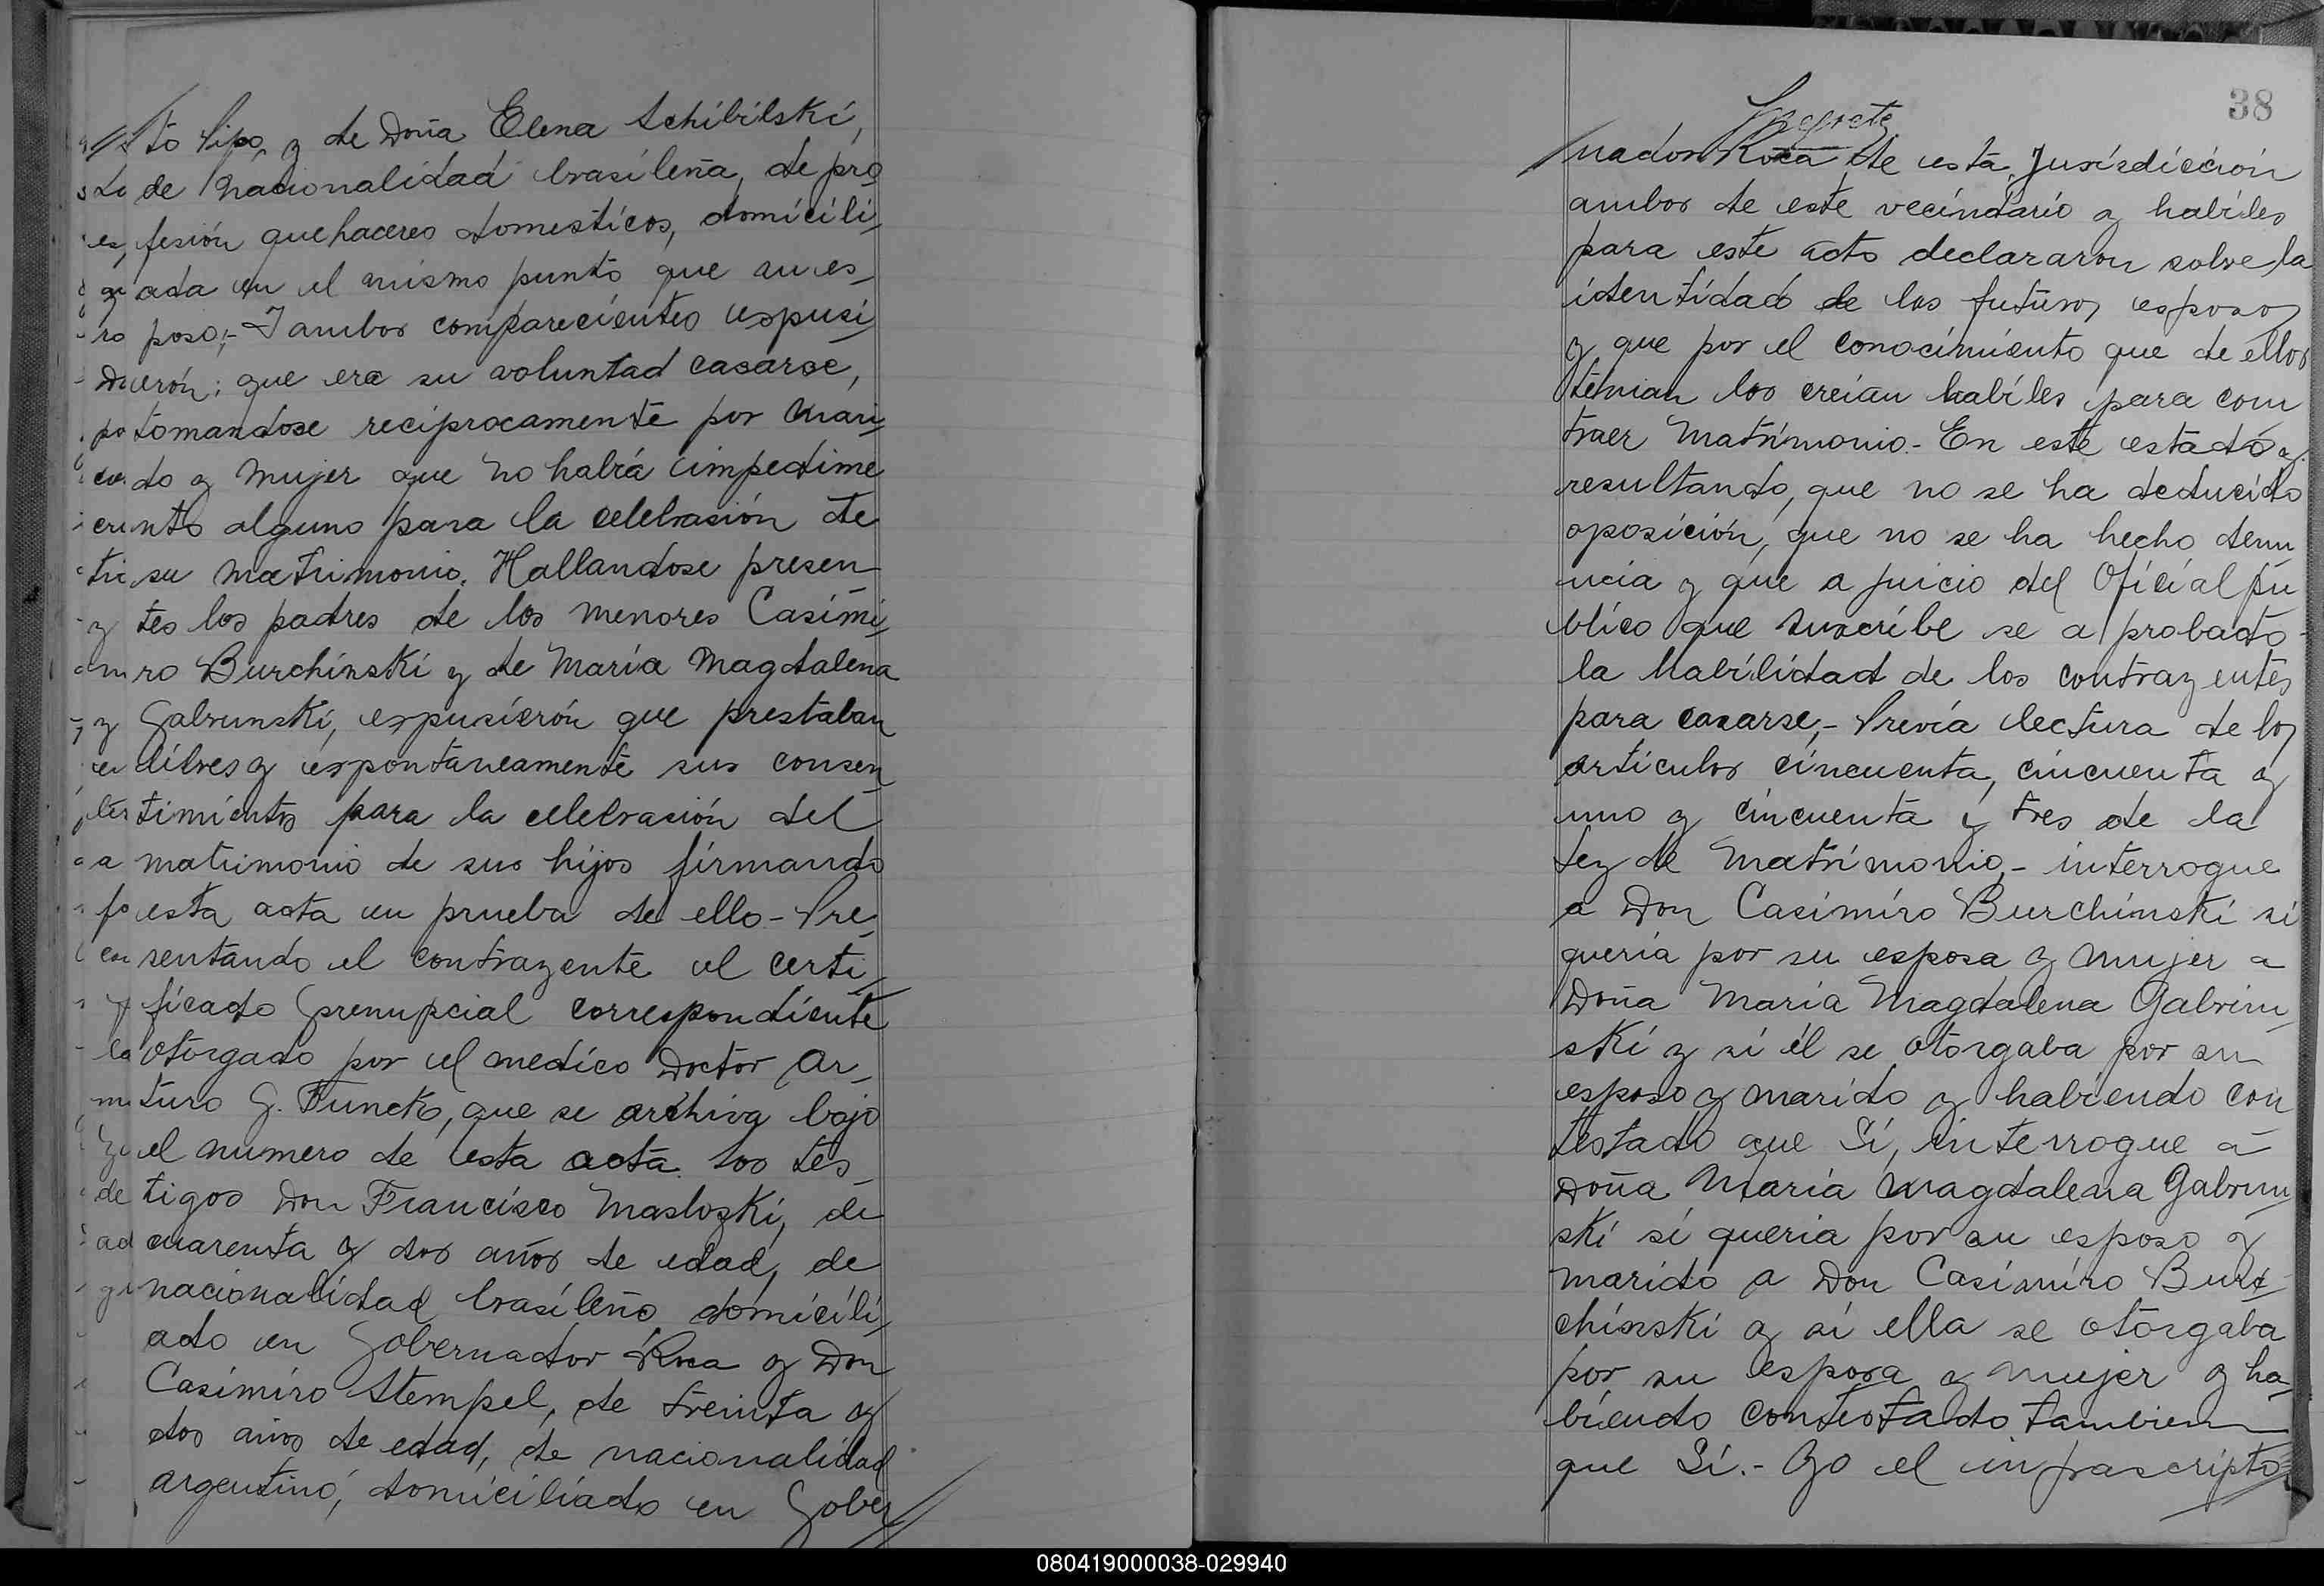 to Sipo, y de Doña Elena Schibilski,
de nacionalidad brasileña, de pro
fesión quehaceres domesticos, domicili
ada en el mismo punto que su es
poso;- I ambos comparecientes expusi
erón: que era su voluntad casarse,
tomandose reciprocamente por mari
do y mujer que no habiá impedime
nto alguno para la celebrasión de
su matrimonio. Hallandose presen
tes los padres de los menores Casimi
ro Burchinski y de Maria Magdalena
Gabrunski, expusierón que prestaban
libres y espontaneamente sus consen
timientos para la celebrasión del
matrimonio de sus hijos firmando
esta acta en prueba de ello - Pre
sentando el contrayente el certi
ficado prenupcial correspondiente
otorgado por el medico Doctor Ar
turo G. Functo, que se archiva bajo
el numero de esta acta. Los tes
tigos Don Francisco Masloski, de
cuarenta y dos años de edad, de
nacionalidad brasileño domicili
ado en Gobernador Roca y Don
Casimiro Stempel, de treinta y
dos años de edad, de nacionalidad
argentino, domiciliado en Gober
38
nador Roca de esta Jurisdicción
ambos de este vecindario y habiles
para este acto declararon sobre la
identidad de los futuros esposos
y que por el conocimiento que de ellos
tenian los creian habiles para con
traer Matrimonio.- En este estado y
resultando, que no se ha deducido
oposición, que no se ha hecho denu
ncia y que a juicio del Oficial pú
blico que suscribe se a probado
la habilidad de los contrayentes
para casarse,- Previa lectura de los
articulos cincuenta, cincuenta y
uno y cincuenta y tres de la
Ley de Matrimonio,- interrogue
a Don Casimiro Burchinski si
queria por su esposa y mujer a
Doña Maria Magdalena Gabrun
ski y si él se otorgaba por su
esposo y marido y habiendo con
testado que Si, interrogue a
Doña Maria Magdalena Gabrun
ski si queria por su esposo y
marido a Don Casimiro Bur
chinski y si ella se otorgaba
por su esposa y mujer y ha
biendo contestado tambien
que Si.- Yo el infrascripto
080419000038-029940